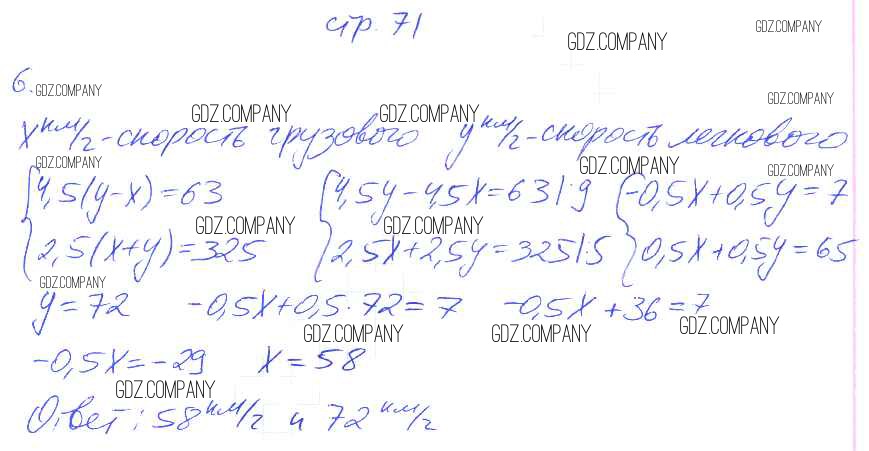 стр. 71
GDZ.COMPANY GDZ.COMPANY
6. GDZ.COMPANY GDZ.COMPANY
GDZ.COMPANY GDZ.COMPANY
x км/ч - скорость грузового y км/ч - скорость легкового
GDZ.COMPANY GDZ.COMPANY GDZ.COMPANY
4,5(y-x)=63 4,5y-4,5x=63|:9 -0,5x+0,5y=7
GDZ.COMPANY GDZ.COMPANY
2,5(x+y)=325 2,5x+2,5y=325|:5 0,5x+0,5y=65
GDZ.COMPANY
y=72 -0,5x+0,5·72=7 -0,5x+36=7
GDZ.COMPANY GDZ.COMPANY GDZ.COMPANY
-0,5x=-29 x=58
GDZ.COMPANY
Ответ: 58 км/ч и 72 км/ч